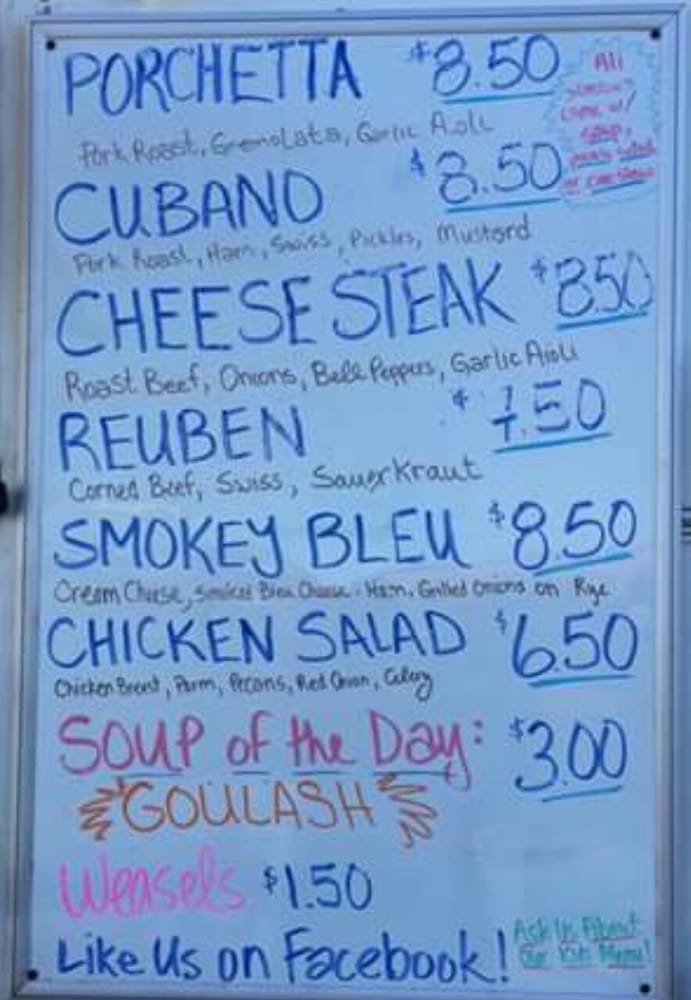 PORCHETTA $8.50
Pork Roast, Gremolata, Garlic Aoli
CUBANO $8.50
Pork Roast, Ham, Swiss, Pickles, Mustard
CHEESE STEAK $8.50
Roast Beef, Onions, Bell Peppers, Garlic Aioli
REUBEN $7.50
Corned Beef, Swiss, Sauerkraut
SMOKEY BLEU $8.50
Cream Cheese, Smoked Bleu Cheese, Ham, Grilled Onions on Rye
CHICKEN SALAD $6.50
Chicken Breast, Parm, Pecans, Red Onion, Celery
SOUP of the Day: $3.00
GOULASH
Weasels $1.50
Like Us on Facebook!
Ask Us About
Our Kids Menu!
All
come w/
soup,